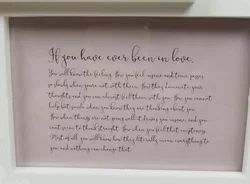 If you have ever been in love,
You will know the feeling. You feel insane and time passes
so slowly when youre not with them. You they dominate your
thoughts and you can almost feel them with you. You you cannot
help but smile when you know they are thinking about you.
You when things are not going well it
cant seem to think straight. You when you feel that emptiness.
Most of all you will know how they literally mean everything to
you and nothing can change that.